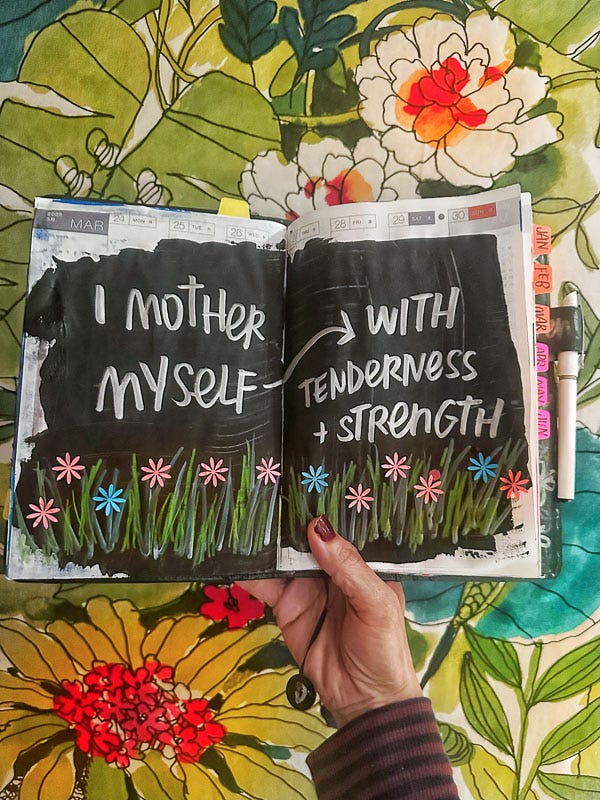 2025
MAR 24 MON 25 TUE 26 WED
28 FRI 29 SAT 30 SUN
I MOTHER
MYSELF
WITH
TENDERNESS
+ STRENGTH
JAN
FEB
MAR
APR
MAY
JUN